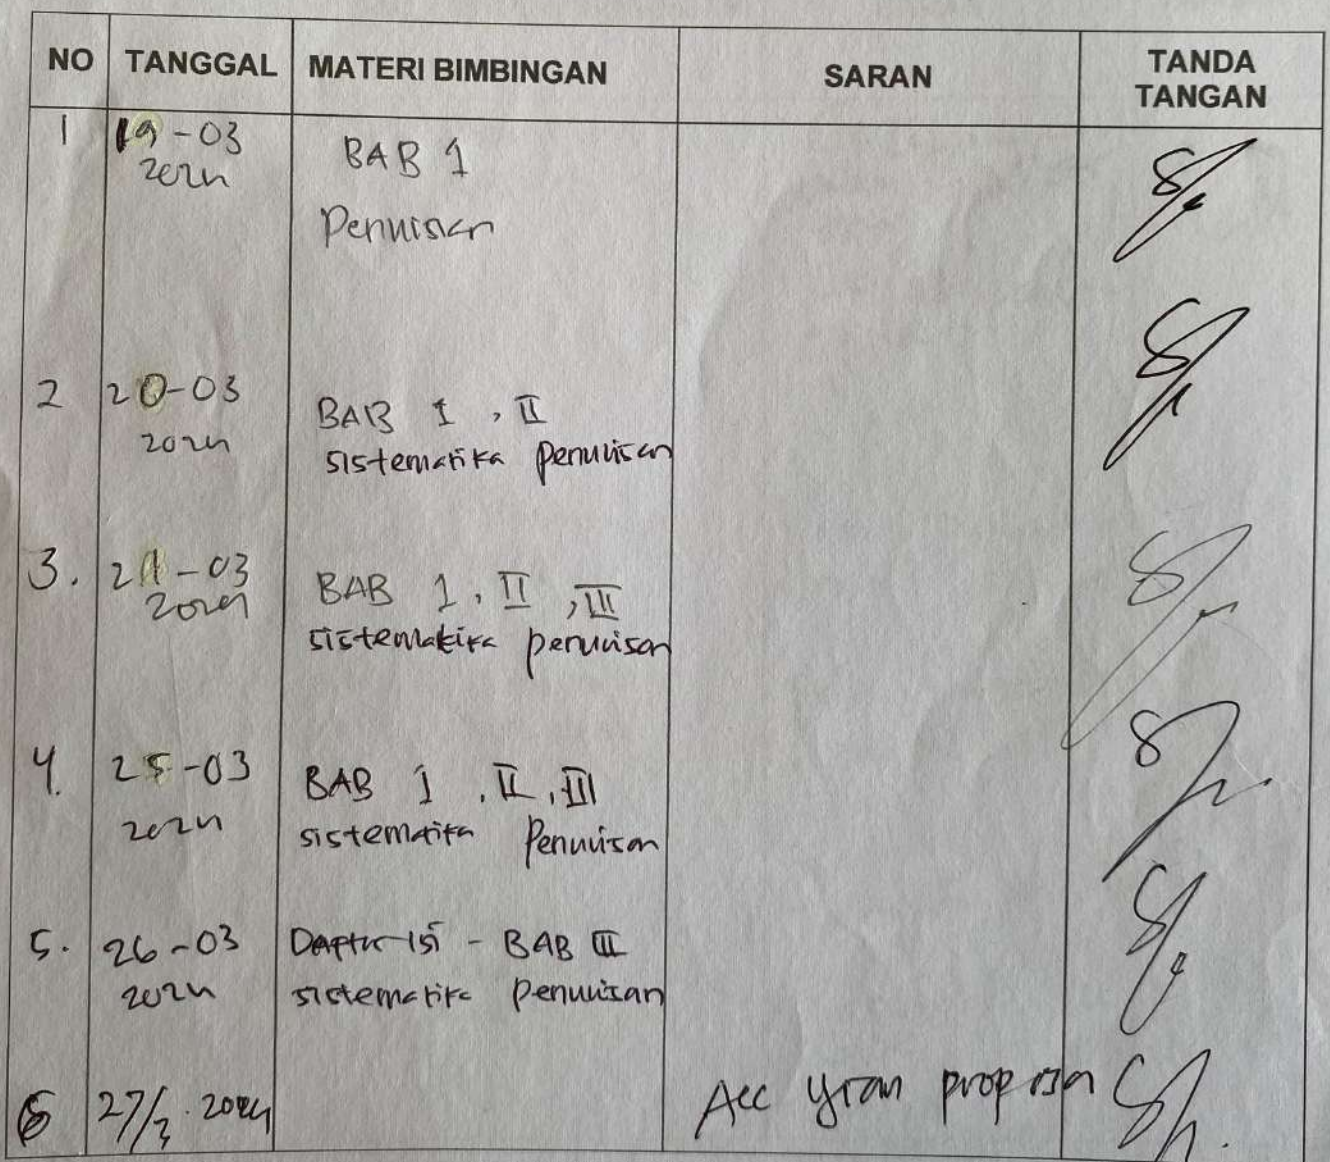 NO TANGGAL MATERI BIMBINGAN SARAN TANDA TANGAN
1 19-03 2024 BAB 1
Penulisan
2 20-03 2024 BAB I, II
sistematika penulisan
3. 21-03 2024 BAB 1, II, III
sistematika penulisan
4. 25-03 2024 BAB I, II, III
sistematika Penulisan
5. 26-03 2024 Daptar isi - BAB III
sistematika penulisan
6 27/3. 2024 Acc proposal